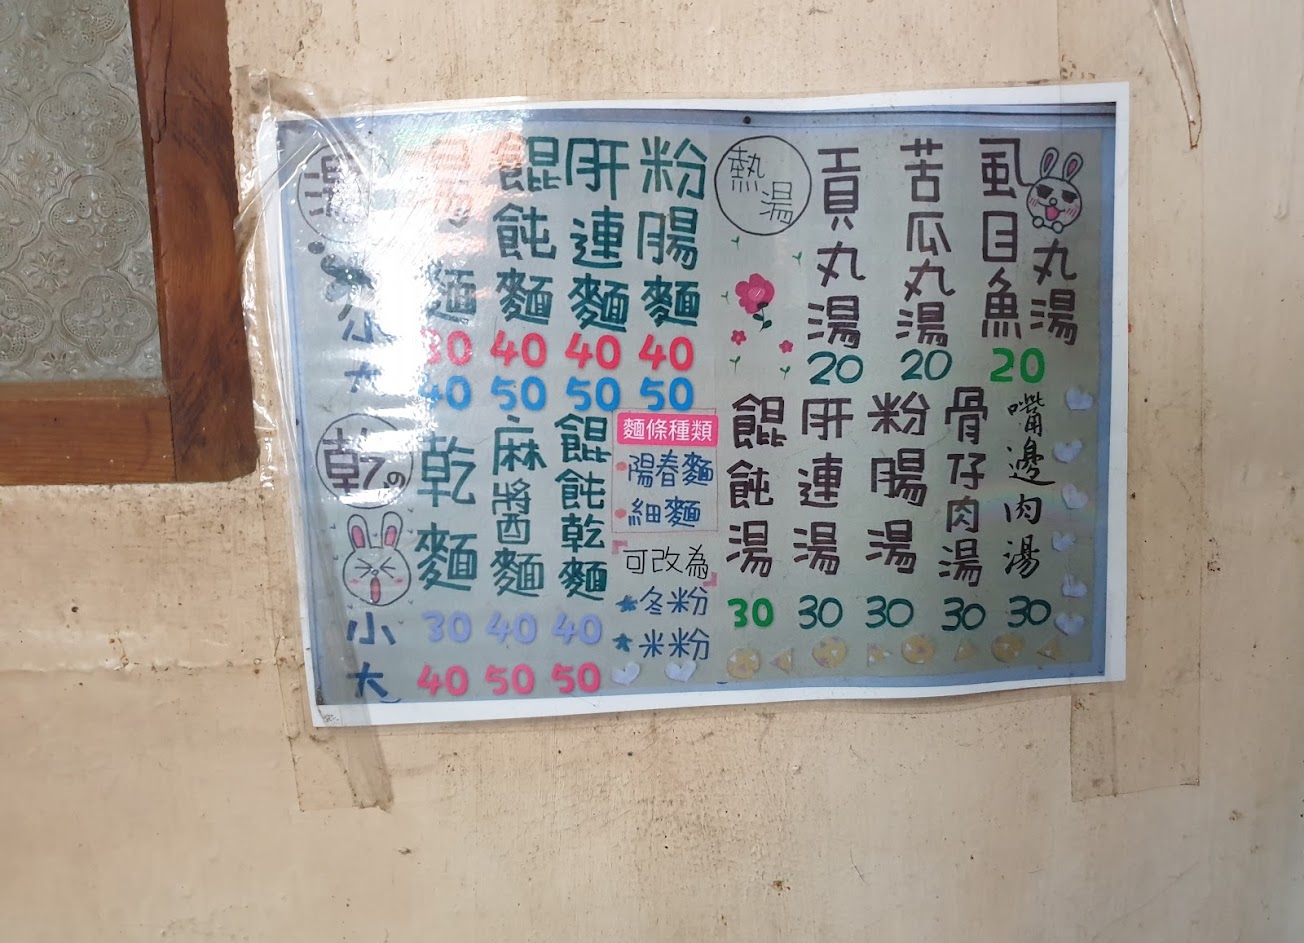 湯
湯麵
餛飩麵
肝連麵
粉腸麵
小 30 40 40 40
大 40 50 50 50
乾の
乾麵
麻醬麵
餛飩乾麵
小 30 40 40
大 40 50 50
麵條種類
陽春麵
細麵
可改為
冬粉
米粉
熱湯
貢丸湯 20
苦瓜丸湯 20
虱目魚丸湯 20
餛飩湯 30
肝連湯 30
粉腸湯 30
骨仔肉湯 30
嘴邊肉湯 30